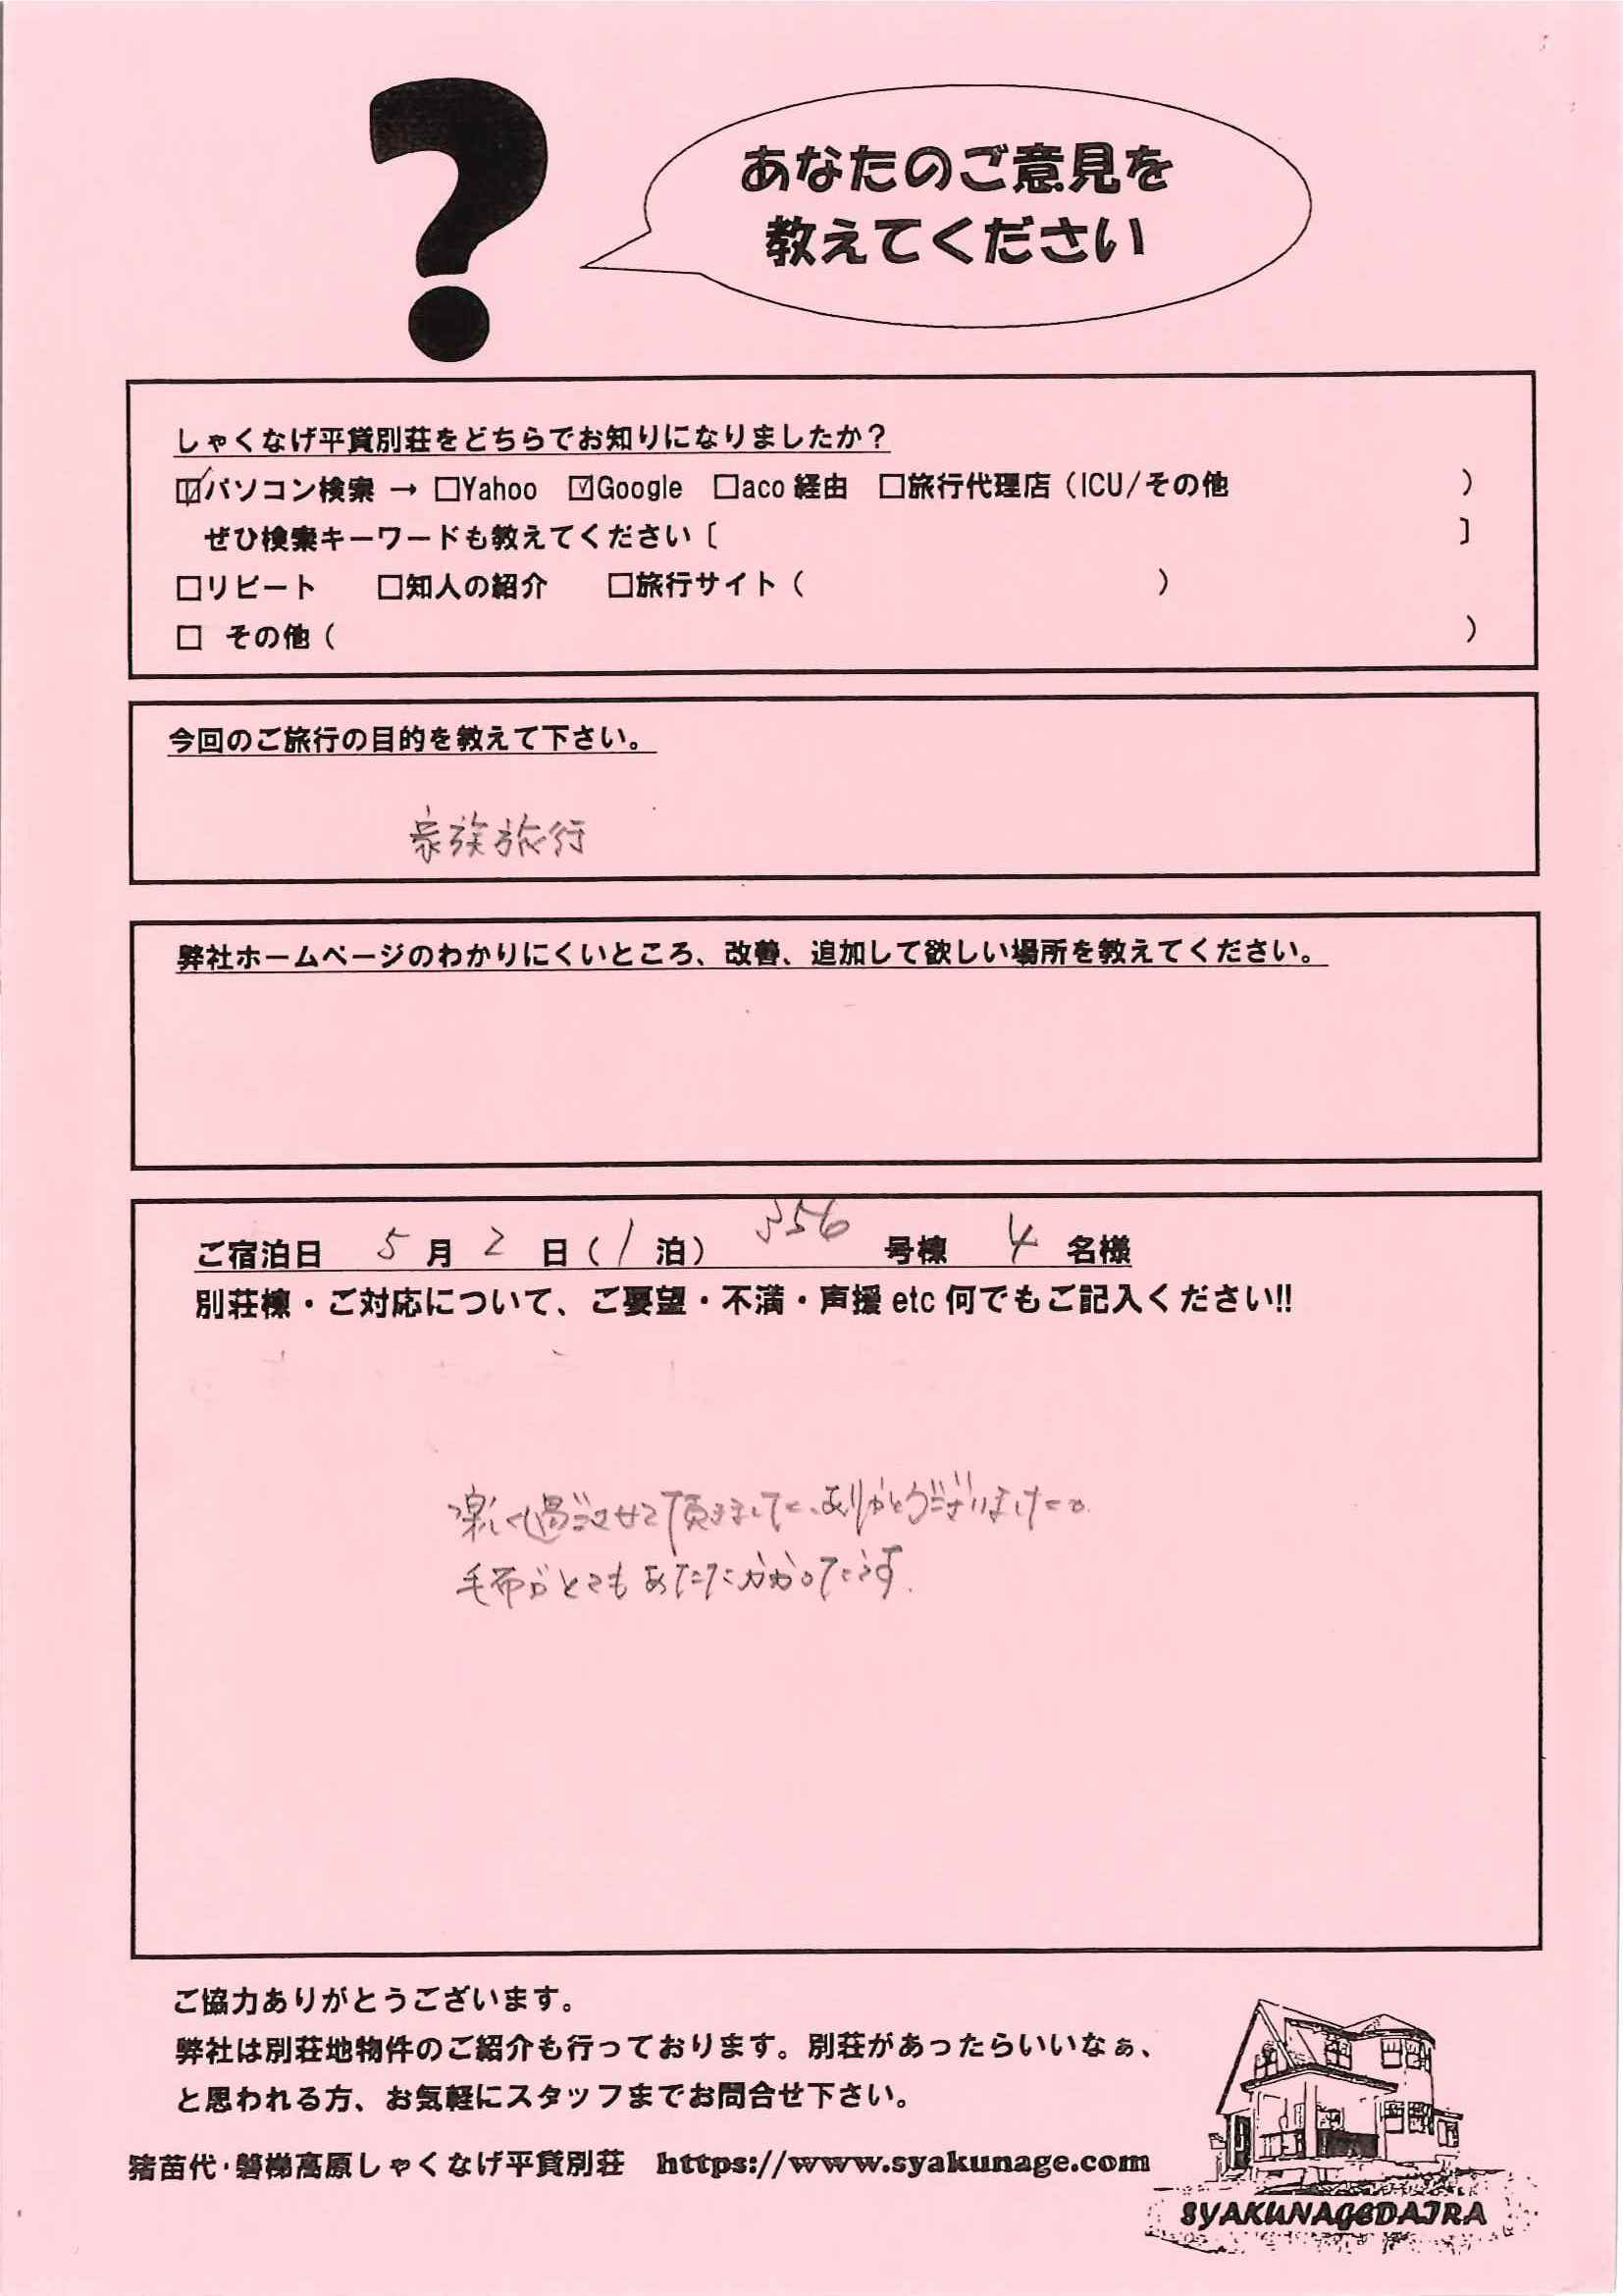 ?
あなたのご意見を
教えてください
しゃくなげ平貸別荘をどちらでお知りになりましたか？
☑パソコン検索 → □Yahoo ☑Google □aco 経由 □旅行代理店（ICU/その他 ）
ぜひ検索キーワードも教えてください〔 〕
□リピート □知人の紹介 □旅行サイト（ ）
□ その他（ ）
今回のご旅行の目的を教えて下さい。
家族旅行
弊社ホームページのわかりにくいところ、改善、追加して欲しい場所を教えてください。
ご宿泊日 5月 2 日（1 泊） 356 号棟 4 名様
別荘棟・ご対応について、ご要望・不満・声援 etc 何でもご記入ください!!
楽しく過ごさせて頂きました。ありがとうございました。
毛布がとてもあたたかかったです。
ご協力ありがとうございます。
弊社は別荘地物件のご紹介も行っております。別荘があったらいいなぁ、
と思われる方、お気軽にスタッフまでお問合せ下さい。
猪苗代・磐梯高原しゃくなげ平貸別荘 https://www.syakunage.com
SYAKUNAGEDAIRA